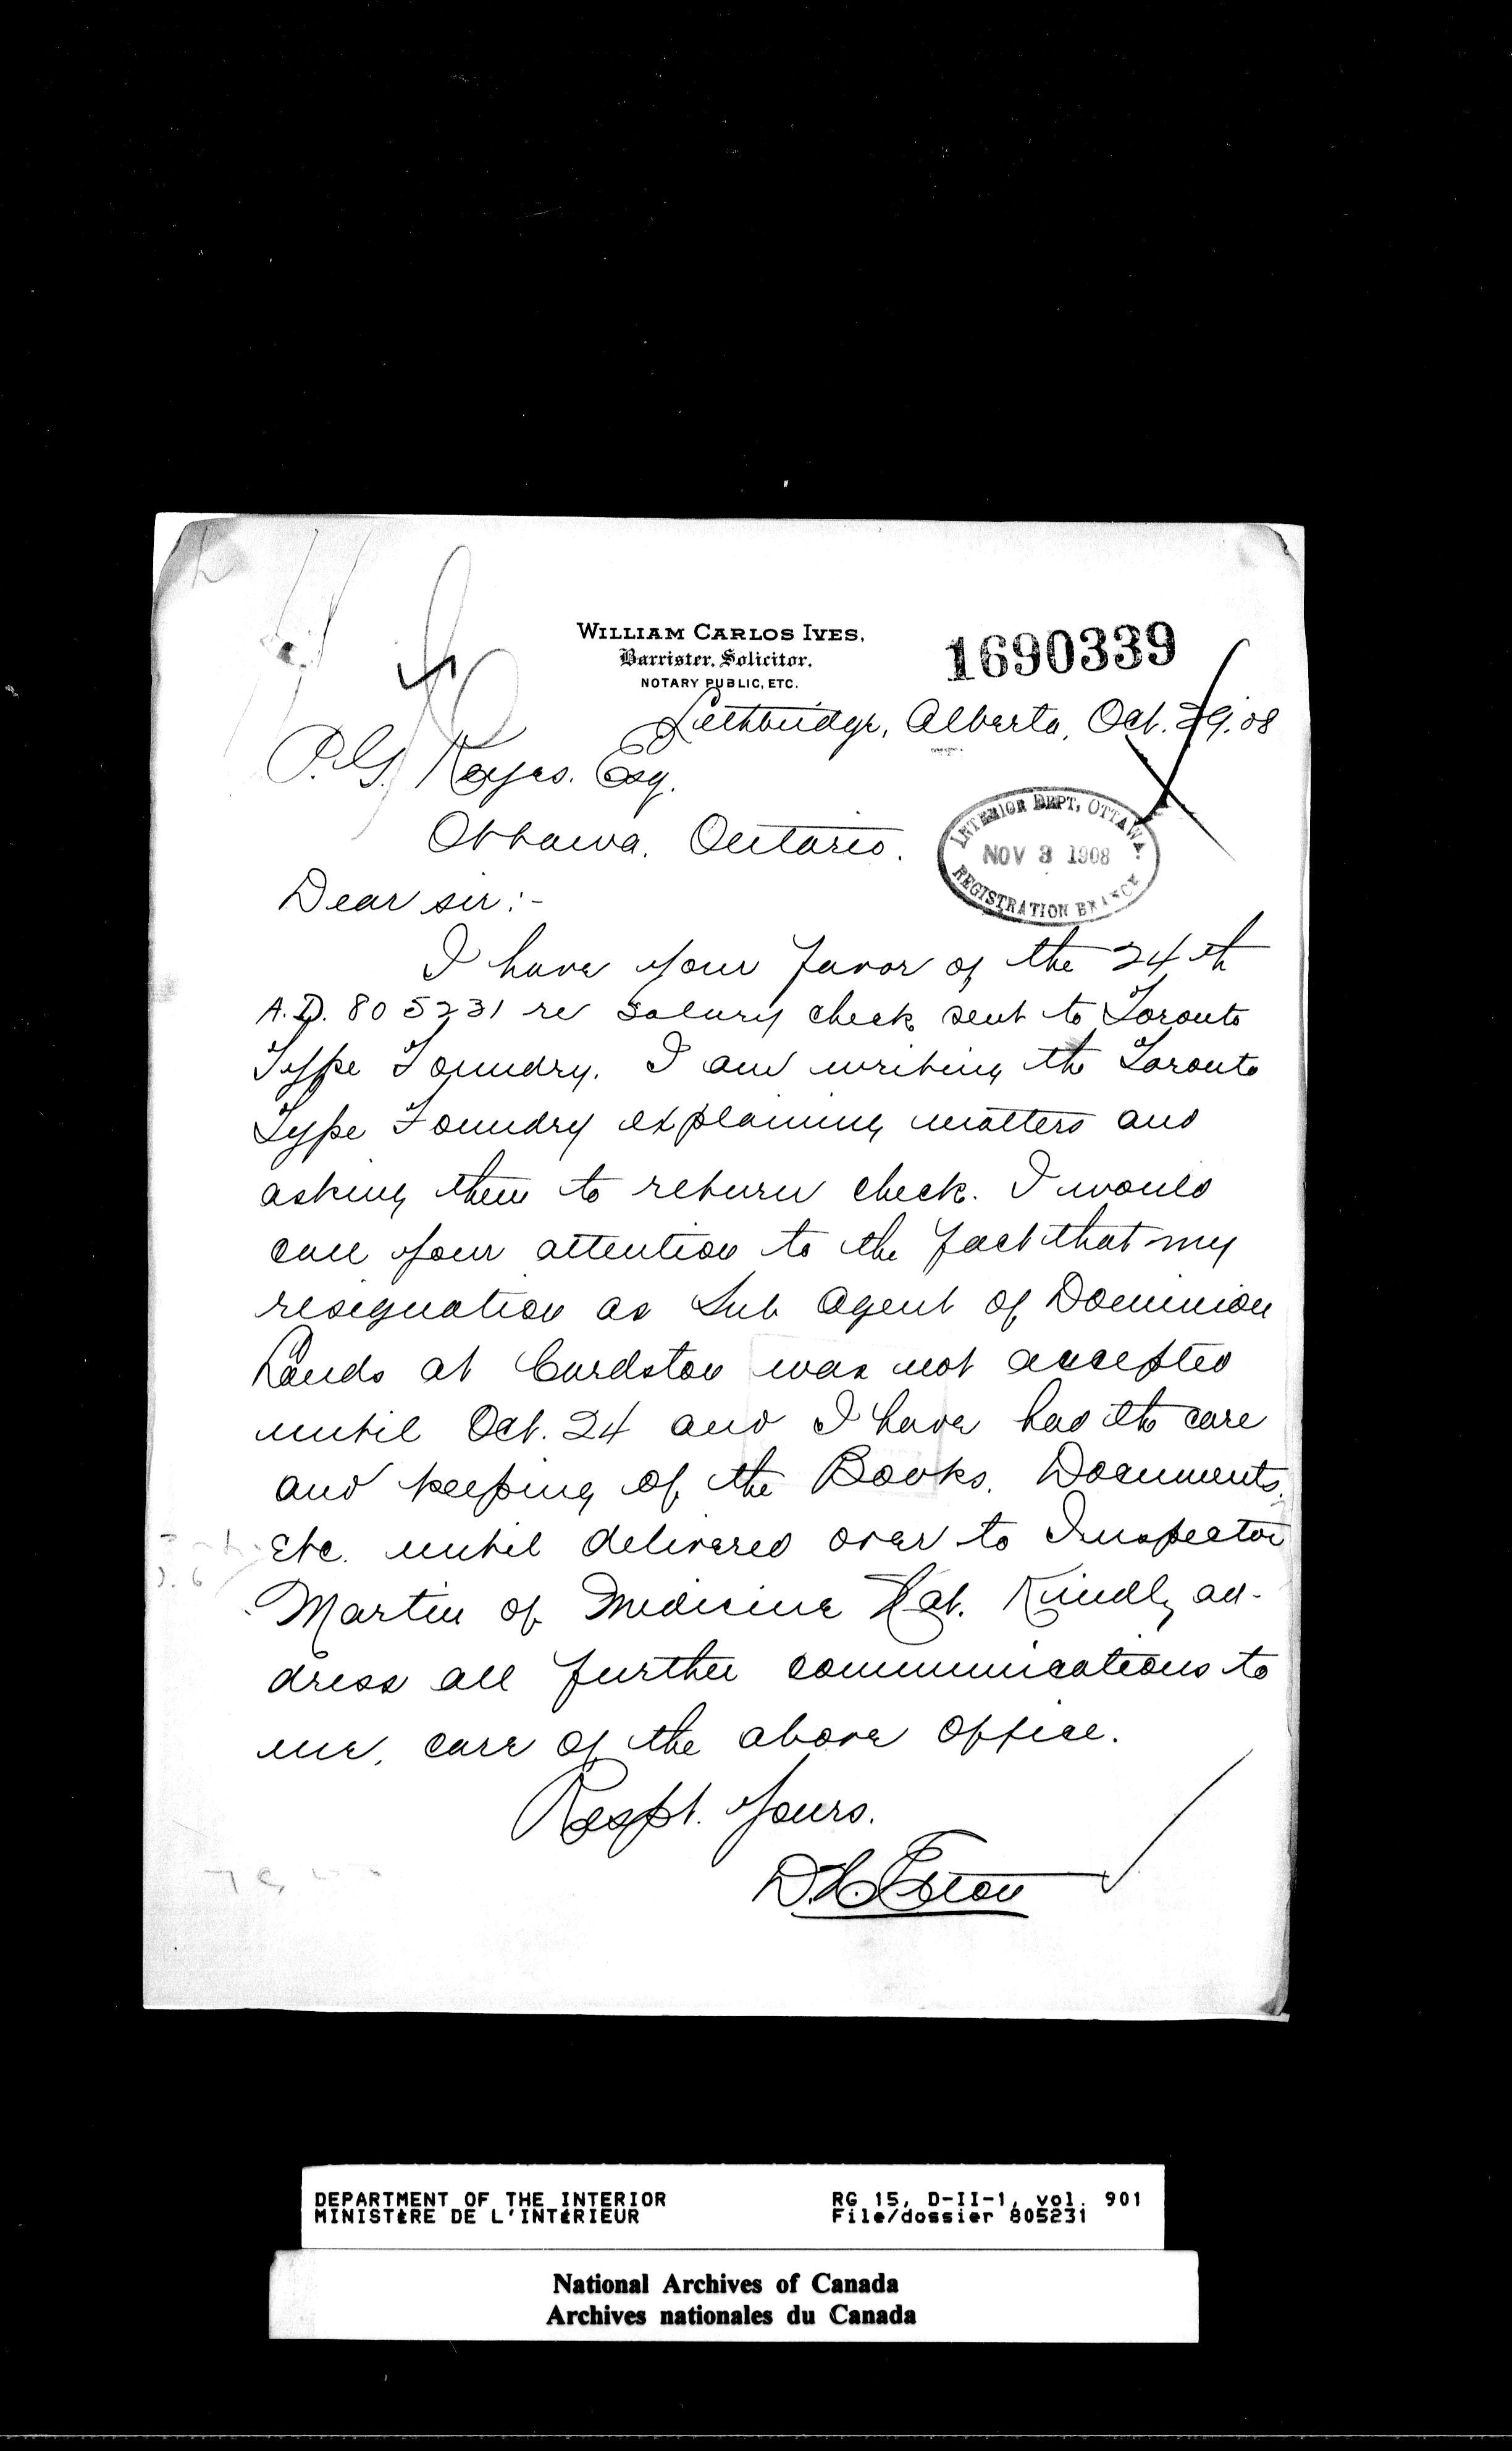 WILLIAM CARLOS IVES,
Barrister, Solicitor,
NOTARY PUBLIC, ETC.
1690339
Lethbridge, Alberta, Oct. 29.08
P.G. Keyes. Esq.
Ottawa. Ontario.
INTERIOR DEPT, OTTAWA.
NOV 3 1908
REGISTRATION BRANCH
Dear sir:-
I have your favor of the 24th
A.D. 805231 re salary check sent to Toronto
Type Foundry. I am writing the Toronto
Type Foundry explaining matters and
asking them to return check. I would
call your attention to the fact that my
resignation as Sub Agent of Dominion
Lands at Cardston was not accepted
until Oct. 24 and I have had the care
and keeping of the Books. Documents,
Etc. until delivered over to Inspector
Martin of Medicine Hat. Kindly ad-
dress all further communications to
me, care of the above office.
Respt. Yours.
DEPARTMENT OF THE INTERIOR RG 15, D-II-1, vol. 901
MINISTÈRE DE L'INTÉRIEUR File/dossier 805231
National Archives of Canada
Archives nationales du Canada